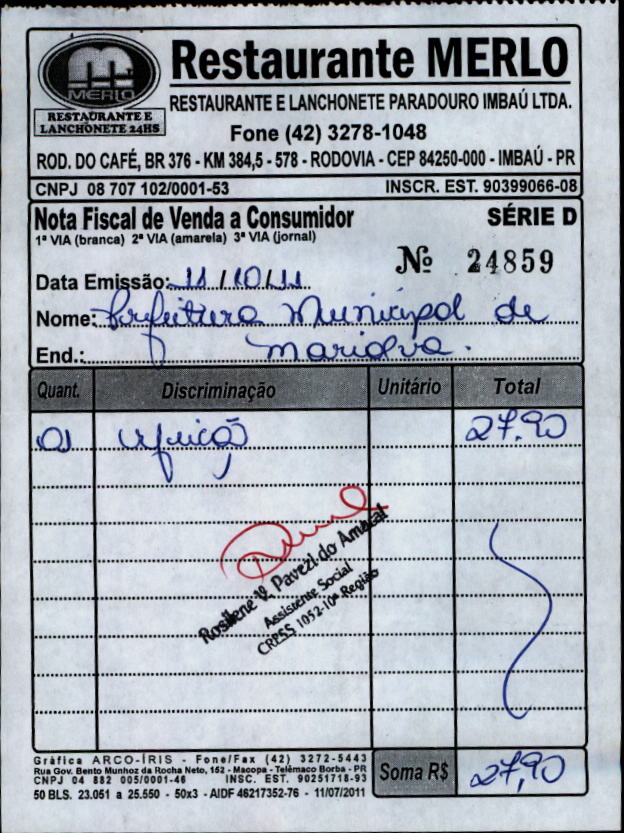 MERLO
RESTAURANTE E
LANCHONETE 24HS
Restaurante MERLO
RESTAURANTE E LANCHONETE PARADOURO IMBAÚ LTDA.
Fone (42) 3278-1048
ROD. DO CAFÉ, BR 376 - KM 384,5 - 578 - RODOVIA - CEP 84250-000 - IMBAÚ - PR
CNPJ 08 707 102/0001-53 INSCR. EST. 90399066-08
Nota Fiscal de Venda a Consumidor SÉRIE D
1ª VIA (branca) 2ª VIA (amarela) 3ª VIA (jornal)
Nº 24859
Data Emissão: 11/10/11
Nome: Prefeitura Municipal de
End.: Marialva.
Quant. Discriminação Unitário Total
01 refeição 27,90
Rosilene V. Pavezi do Amaral
Assistente Social
CRESS 1052-10ª Região
Gráfica ARCO-ÍRIS - Fone/Fax (42) 3272-5443
Rua Gov. Bento Munhoz da Rocha Neto, 152 - Macopa - Telêmaco Borba - PR
CNPJ 04 882 005/0001-46 INSC. EST. 90251718-93
50 BLS. 23.051 a 25.550 - 50x3 - AIDF 46217352-76 - 11/07/2011
Soma R$ 27,90